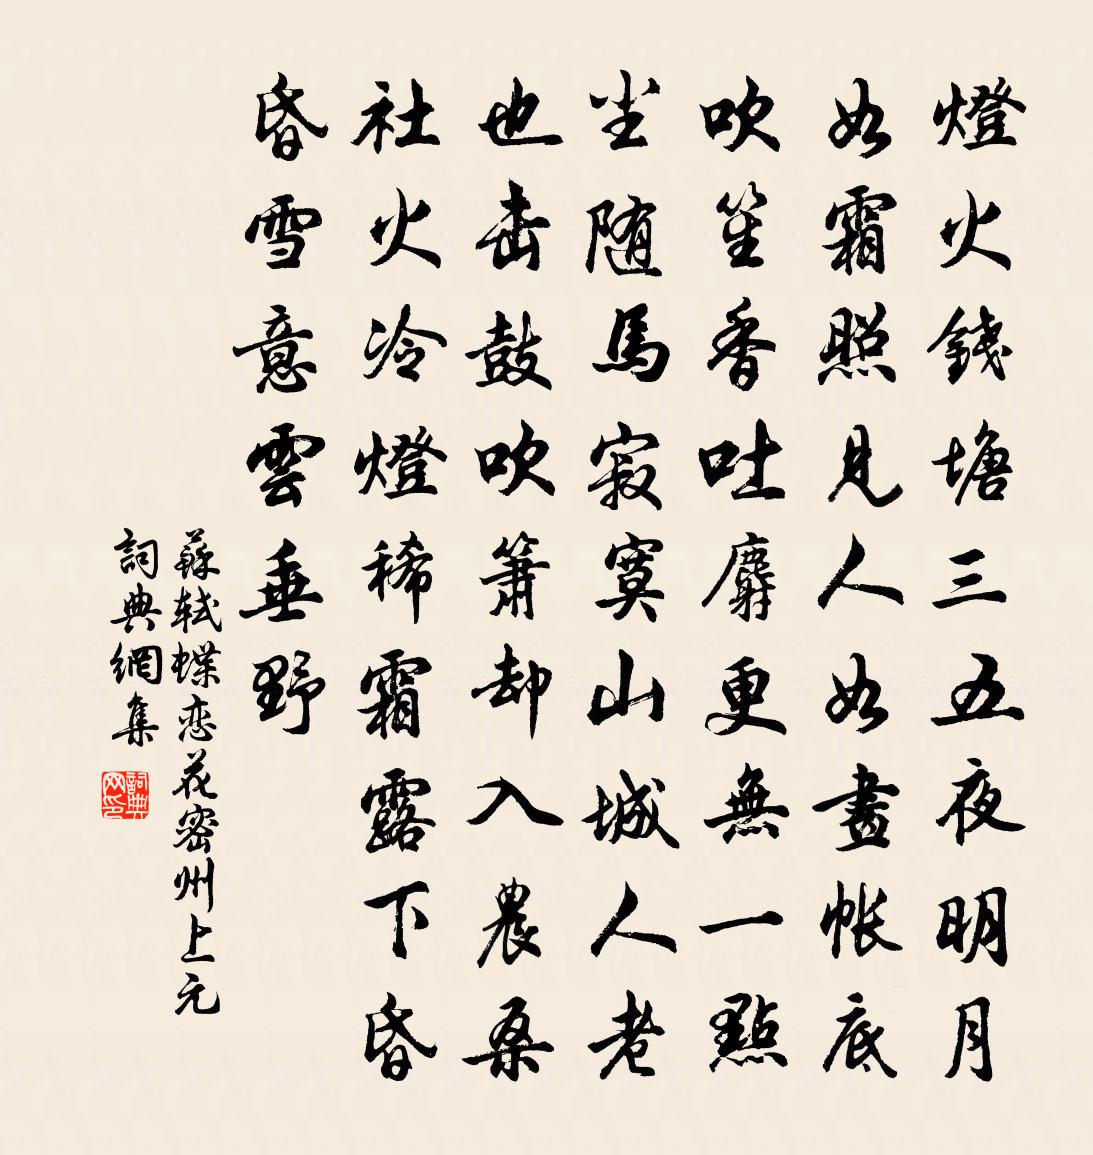 燈火錢塘三五夜明月
如霜照見人如畫帳底
吹笙香吐麝更無一點
尘随馬寂寞山城人老
也击鼓吹簫却入農桑
社火冷燈稀霜露下昏
昏雪意雲垂野
蘇軾蝶恋花密州上元
詞典網集
詞典网印